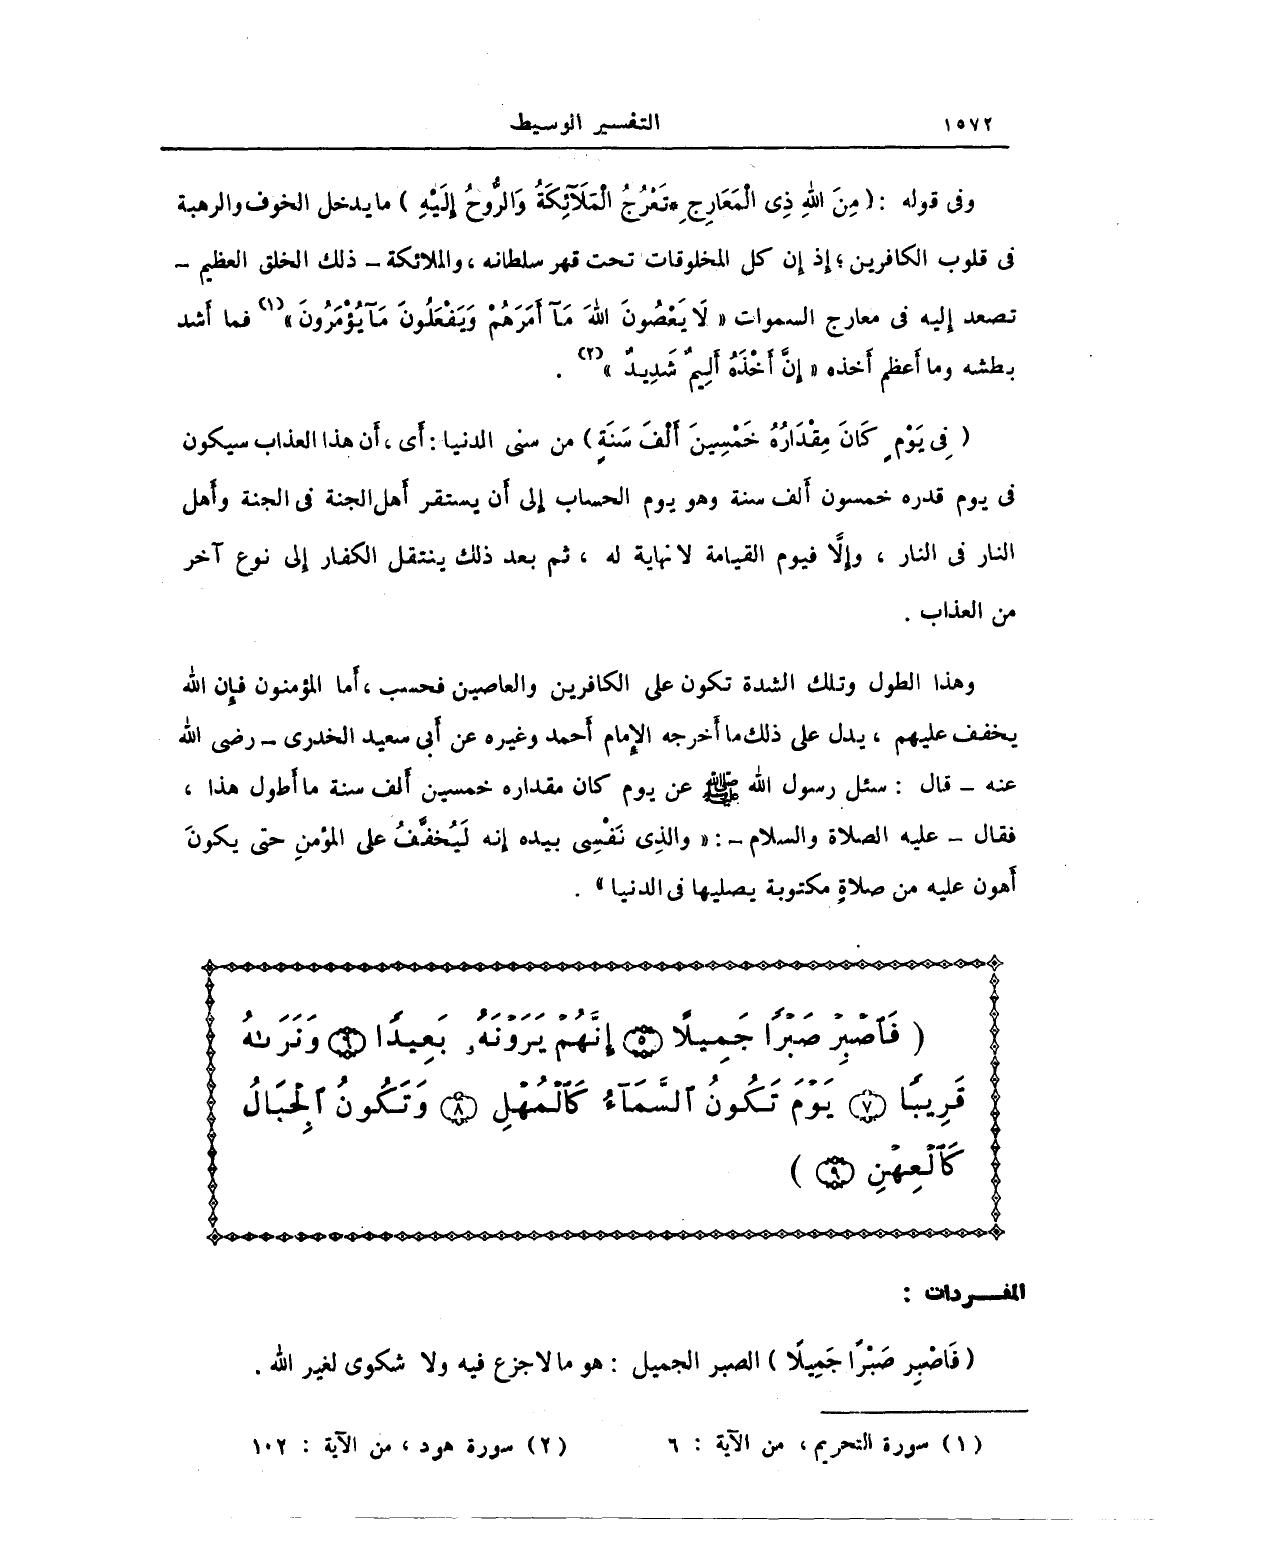 ١٥٧٢ التفسير الوسيط
وفى قوله : ( مِنَ اللهِ ذِى الْمَعَارِجِ * تَعْرُجُ الْمَلَآئِكَةُ وَالرُّوحُ إِلَيْهِ ) ما يدخل الخوف والرهبة
فى قلوب الكافرين ؛ إذ إن كل المخلوقات تحت قهر سلطانه ، والملائكة – ذلك الخلق العظيم –
تصعد إليه فى معارج السموات « لَا يَعْصُونَ اللهَ مَآ أَمَرَهُمْ وَيَفْعَلُونَ مَا يُؤْمَرُونَ »(١) فما أشد
بطشه وما أعظم أخذه « إِنَّ أَخْذَهُ أَلِيمٌ شَدِيدٌ »(٢) .
( فِى يَوْمٍ كَانَ مِقْدَارُهُ خَمْسِينَ أَلْفَ سَنَةٍ ) من سنى الدنيا : أى ، أن هذا العذاب سيكون
فى يوم قدره خمسون ألف سنة وهو يوم الحساب إلى أن يستقر أهل الجنة فى الجنة وأهل
النار فى النار ، وإلَّا فيوم القيامة لا نهاية له ، ثم بعد ذلك ينتقل الكفار إلى نوع آخر
من العذاب .
وهذا الطول وتلك الشدة تكون على الكافرين والعاصين فحسب ، أما المؤمنون فإن الله
يخفف عليهم ، يدل على ذلك ما أخرجه الإمام أحمد وغيره عن أبى سعيد الخدرى – رضى الله
عنه – قال : سئل رسول الله ﷺ عن يوم كان مقداره خمسين ألف سنة ما أطول هذا ،
فقال – عليه الصلاة والسلام – : « والذِى نَفْسِى بيده إنه لَيُخفَّفُ على المؤمنِ حتى يكونَ
أهون عليه من صلاةٍ مكتوبة يصليها فى الدنيا » .
( فَٱصْبِرْ صَبْرًا جَمِيلًا ۝٥ إِنَّهُمْ يَرَوْنَهُۥ بَعِيدًا ۝٦ وَنَرَىٰهُ
قَرِيبًا ۝٧ يَوْمَ تَكُونُ ٱلسَّمَآءُ كَٱلْمُهْلِ ۝٨ وَتَكُونُ ٱلْجِبَالُ
كَٱلْعِهْنِ ۝٩ )
المفــردات :
( فَاصْبِر صَبْرًا جَمِيلًا ) الصبر الجميل : هو ما لا جزع فيه ولا شكوى لغير الله .
(١) سورة التحريم ، من الآية : ٦ (٢) سورة هود ، من الآية : ١٠٢